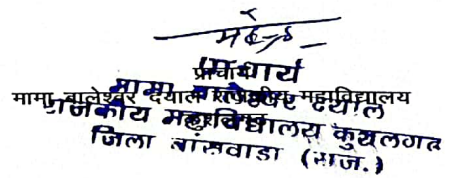 प्राचार्य
प्राचार्य
मामा बालेश्वर दयाल राजकीय महाविद्यालय
मामा बालेश्वर दयाल
राजकीय महाविद्यालय कुशलगढ
जिला बांसवाडा (राज.)